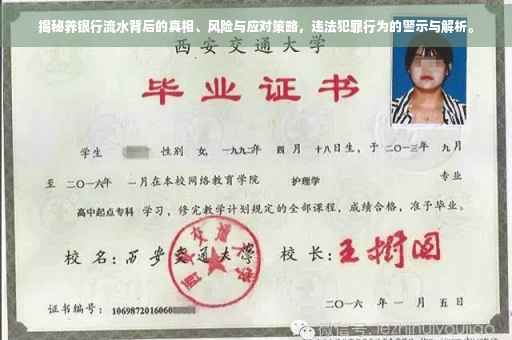 揭秘养银行流水背后的真相、风险与应对策略，违法犯罪行为的警示与解析。
西安交通大学
毕业证书
学生 性别 女，一九九二年 四月 十八日生，于二〇一三年 九月
至 二〇一六年 一月在本校网络教育学院 护理学 专业
高中起点专科 学习，修完教学计划规定的全部课程，成绩合格，准予毕业。
校 名：西安交通大学 校 长：王树国
西安交通大学
证书编号： 1069872016060
二〇一六 年 一 月 五 日
微信号: jiezhinuiyoujiao